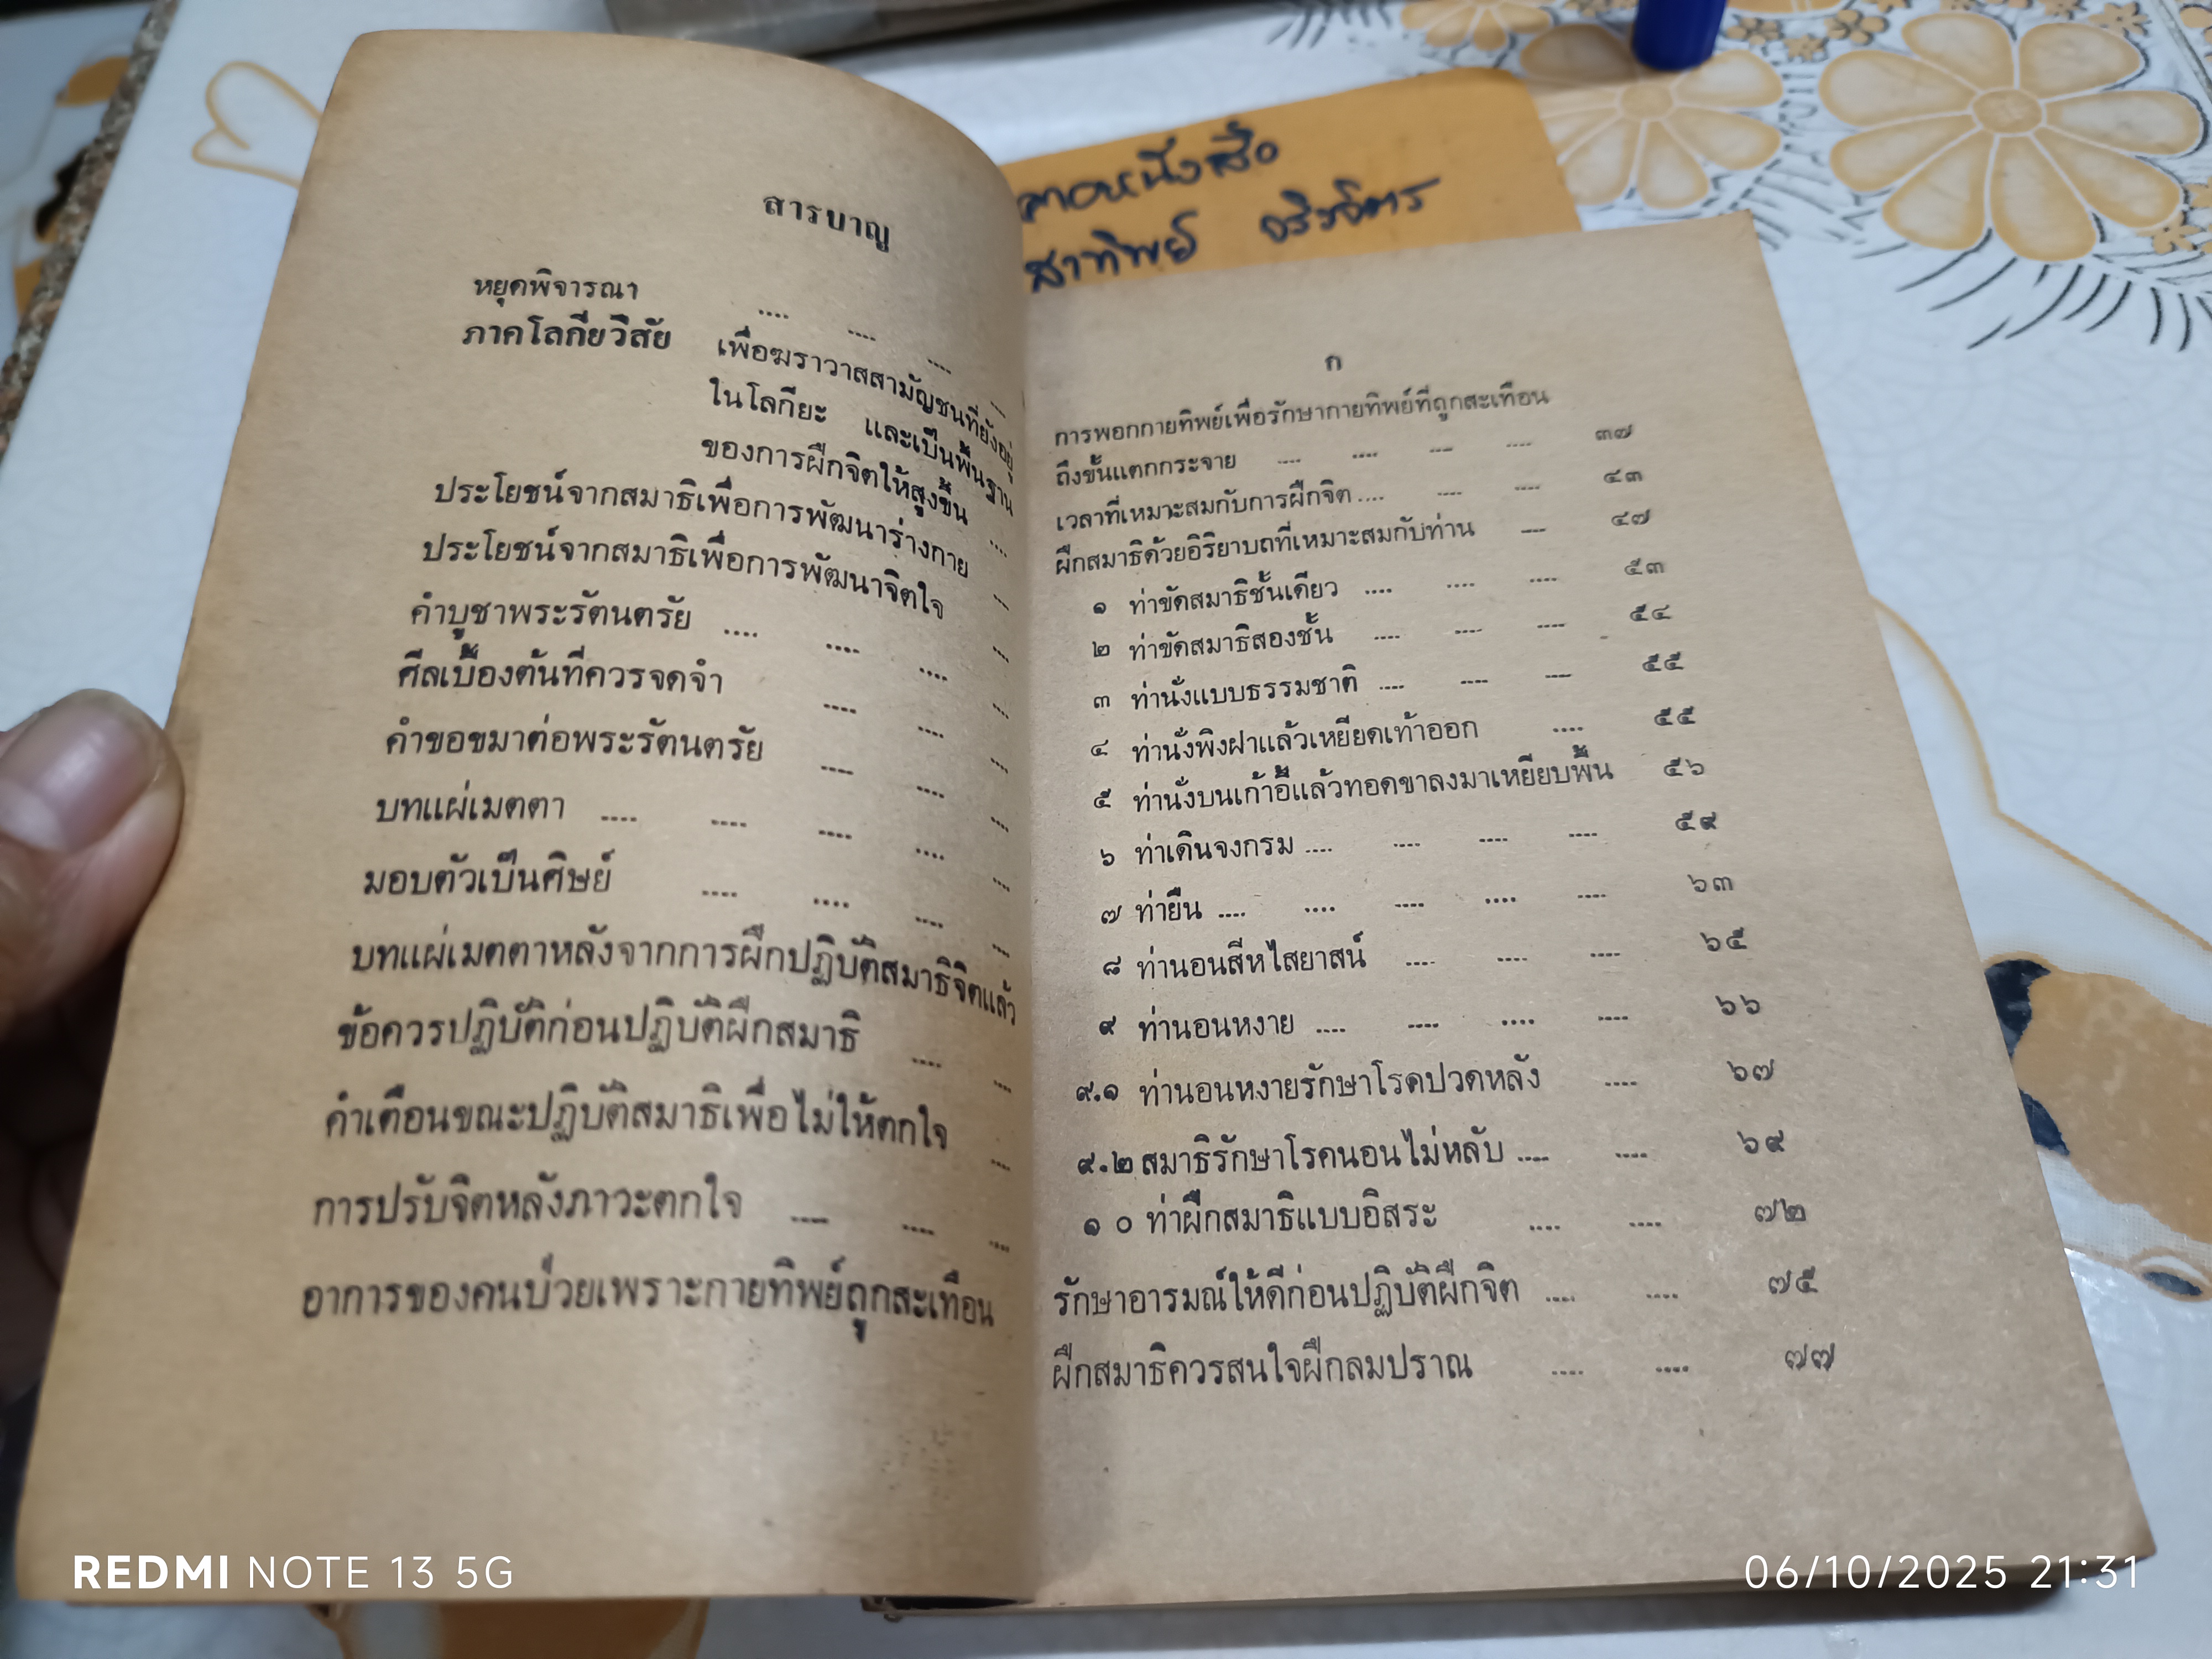 สารบาญ
หยุดพิจารณา .... .... ....
ภาคโลกียวิสัย เพื่อฆราวาสสามัญชนที่ยังอยู่
ในโลกียะ และเป็นพื้นฐาน
ของการฝึกจิตให้สูงขึ้น ....
ประโยชน์จากสมาธิเพื่อการพัฒนาร่างกาย ....
ประโยชน์จากสมาธิเพื่อการพัฒนาจิตใจ ....
คำบูชาพระรัตนตรัย .... .... .... ....
ศีลเบื้องต้นที่ควรจดจำ .... .... ....
คำขอขมาต่อพระรัตนตรัย .... .... ....
บทแผ่เมตตา .... .... .... .... ....
มอบตัวเป็นศิษย์ .... .... .... ....
บทแผ่เมตตาหลังจากการฝึกปฏิบัติสมาธิจิตแล้ว
ข้อควรปฏิบัติก่อนปฏิบัติฝึกสมาธิ .... ....
คำเตือนขณะปฏิบัติสมาธิเพื่อไม่ให้ตกใจ ....
การปรับจิตหลังภาวะตกใจ .... .... ....
อาการของคนป่วยเพราะกายทิพย์ถูกสะเทือน
ก
การพอกกายทิพย์เพื่อรักษากายทิพย์ที่ถูกสะเทือน
ถึงขั้นแตกกระจาย .... .... .... .... ๓๗
เวลาที่เหมาะสมกับการฝึกจิต .... .... .... ๔๓
ฝึกสมาธิด้วยอิริยาบถที่เหมาะสมกับท่าน .... ๔๗
๑ ท่าขัดสมาธิชั้นเดียว .... .... .... ๕๓
๒ ท่าขัดสมาธิสองชั้น .... .... .... ๕๔
๓ ท่านั่งแบบธรรมชาติ .... .... .... ๕๕
๔ ท่านั่งพิงฝาแล้วเหยียดเท้าออก .... ๕๕
๕ ท่านั่งบนเก้าอี้แล้วทอดขาลงมาเหยียบพื้น ๕๖
๖ ท่าเดินจงกรม .... .... .... .... ๕๙
๗ ท่ายืน .... .... .... .... .... ๖๓
๘ ท่านอนสีหไสยาสน์ .... .... .... ๖๕
๙ ท่านอนหงาย .... .... .... .... ๖๖
๙.๑ ท่านอนหงายรักษาโรคปวดหลัง .... ๖๗
๙.๒ สมาธิรักษาโรคนอนไม่หลับ .... .... ๖๙
๑๐ ท่าฝึกสมาธิแบบอิสระ .... .... ๗๒
รักษาอารมณ์ให้ดีก่อนปฏิบัติฝึกจิต .... .... ๗๕
ฝึกสมาธิควรสนใจฝึกลมปราณ .... .... ๗๗
REDMI NOTE 13 5G
06/10/2025 21:31